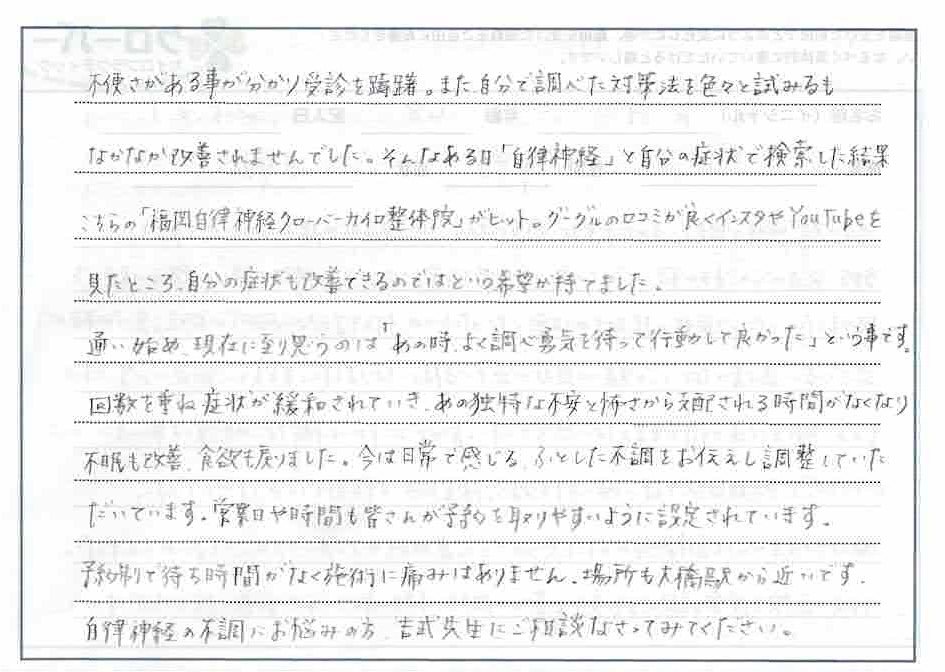 不便さがある事が分かり受診を躊躇。また、自分で調べた対策法を色々と試みるも
なかなか改善されませんでした。そんなある日「自律神経」と自分の症状で検索した結果
こちらの「福岡自律神経クローバーカイロ整体院」がヒット。グーグルの口コミが良くインスタやYouTubeを
見たところ、自分の症状も改善できるのではという希望が持てました。
通い始め、現在に至り思うのは「あの時、よく調べ勇気を持って行動して良かった」という事です。
回数を重ね症状が緩和されていき、あの独特な不安と怖さから支配される時間がなくなり
不眠も改善、食欲も戻りました。今は日常で感じる、ふとした不調をお伝えし調整していた
だいています。営業日や時間も皆さんが予約を取りやすいように設定されています。
予約制で待ち時間がなく施術に痛みはありません、場所も大橋駅から近いです。
自律神経の不調にお悩みの方、吉武先生にご相談なさってみてください。